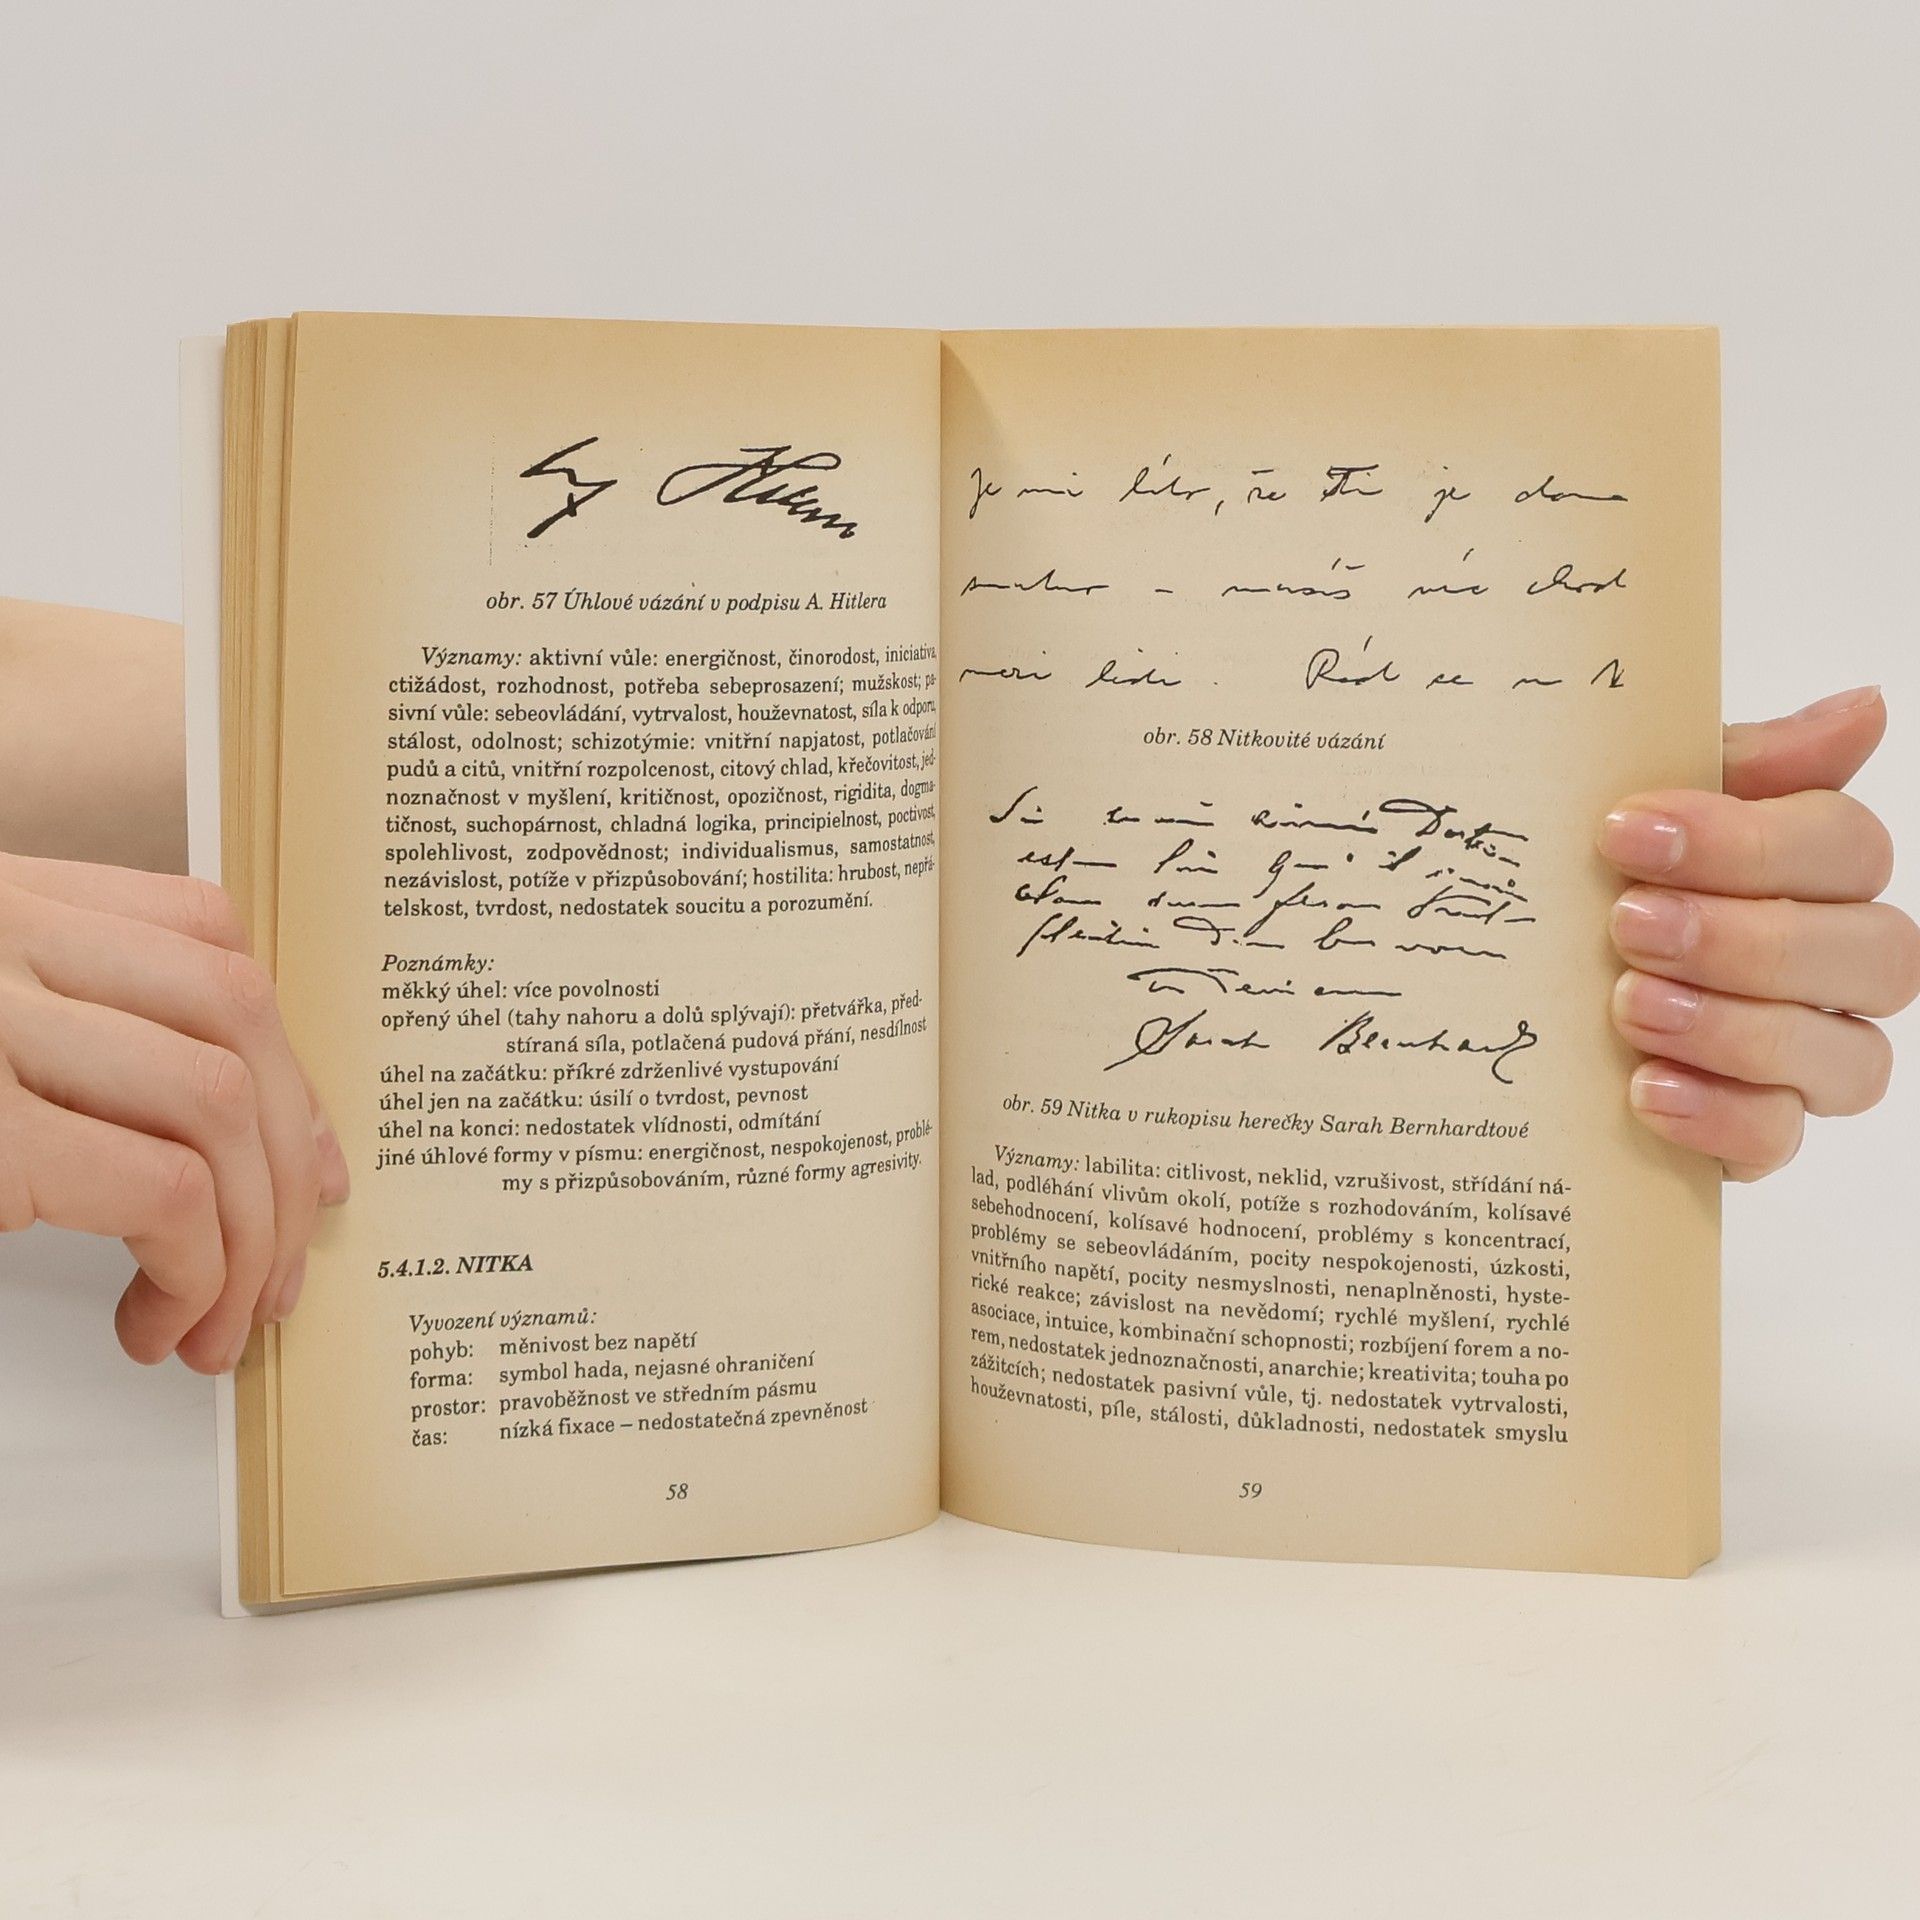 obr. 57 Úhlové vázání v podpisu A. Hitlera
Významy: aktivní vůle: energičnost, činorodost, iniciativa,
ctižádost, rozhodnost, potřeba sebeprosazení; mužskost; pa-
sivní vůle: sebeovládání, vytrvalost, houževnatost, síla k odporu,
stálost, odolnost; schizotýmie: vnitřní napjatost, potlačování
pudů a citů, vnitřní rozpolcenost, citový chlad, křečovitost, jed-
noznačnost v myšlení, kritičnost, opozičnost, rigidita, dogma-
tičnost, suchopárnost, chladná logika, principielnost, poctivost,
spolehlivost, zodpovědnost; individualismus, samostatnost,
nezávislost, potíže v přizpůsobování; hostilita: hrubost, nepřá-
telskost, tvrdost, nedostatek soucitu a porozumění.
Poznámky:
měkký úhel: více povolnosti
opřený úhel (tahy nahoru a dolů splývají): přetvářka, před-
stíraná síla, potlačená pudová přání, nesdílnost
úhel na začátku: příkré zdrženlivé vystupování
úhel jen na začátku: úsilí o tvrdost, pevnost
úhel na konci: nedostatek vlídnosti, odmítání
jiné úhlové formy v písmu: energičnost, nespokojenost, problé-
my s přizpůsobováním, různé formy agresivity.
5.4.1.2. NITKA
Vyvození významů:
pohyb: měnivost bez napětí
forma: symbol hada, nejasné ohraničení
prostor: pravoběžnost ve středním pásmu
čas: nízká fixace – nedostatečná zpevněnost
58
Je mi líto, že Ti je doma
smutno – musíš víc chod
mezi lidi. Rád se
obr. 58 Nitkovité vázání
Sarah Bernhardt
obr. 59 Nitka v rukopisu herečky Sarah Bernhardtové
Významy: labilita: citlivost, neklid, vzrušivost, střídání ná-
lad, podléhání vlivům okolí, potíže s rozhodováním, kolísavé
sebehodnocení, kolísavé hodnocení, problémy s koncentrací,
problémy se sebeovládáním, pocity nespokojenosti, úzkosti,
vnitřního napětí, pocity nesmyslnosti, nenaplněnosti, hyste-
rické reakce; závislost na nevědomí; rychlé myšlení, rychlé
asociace, intuice, kombinační schopnosti; rozbíjení forem a no-
rem, nedostatek jednoznačnosti, anarchie; kreativita; touha po
zážitcích; nedostatek pasivní vůle, tj. nedostatek vytrvalosti,
houževnatosti, píle, stálosti, důkladnosti, nedostatek smyslu
59